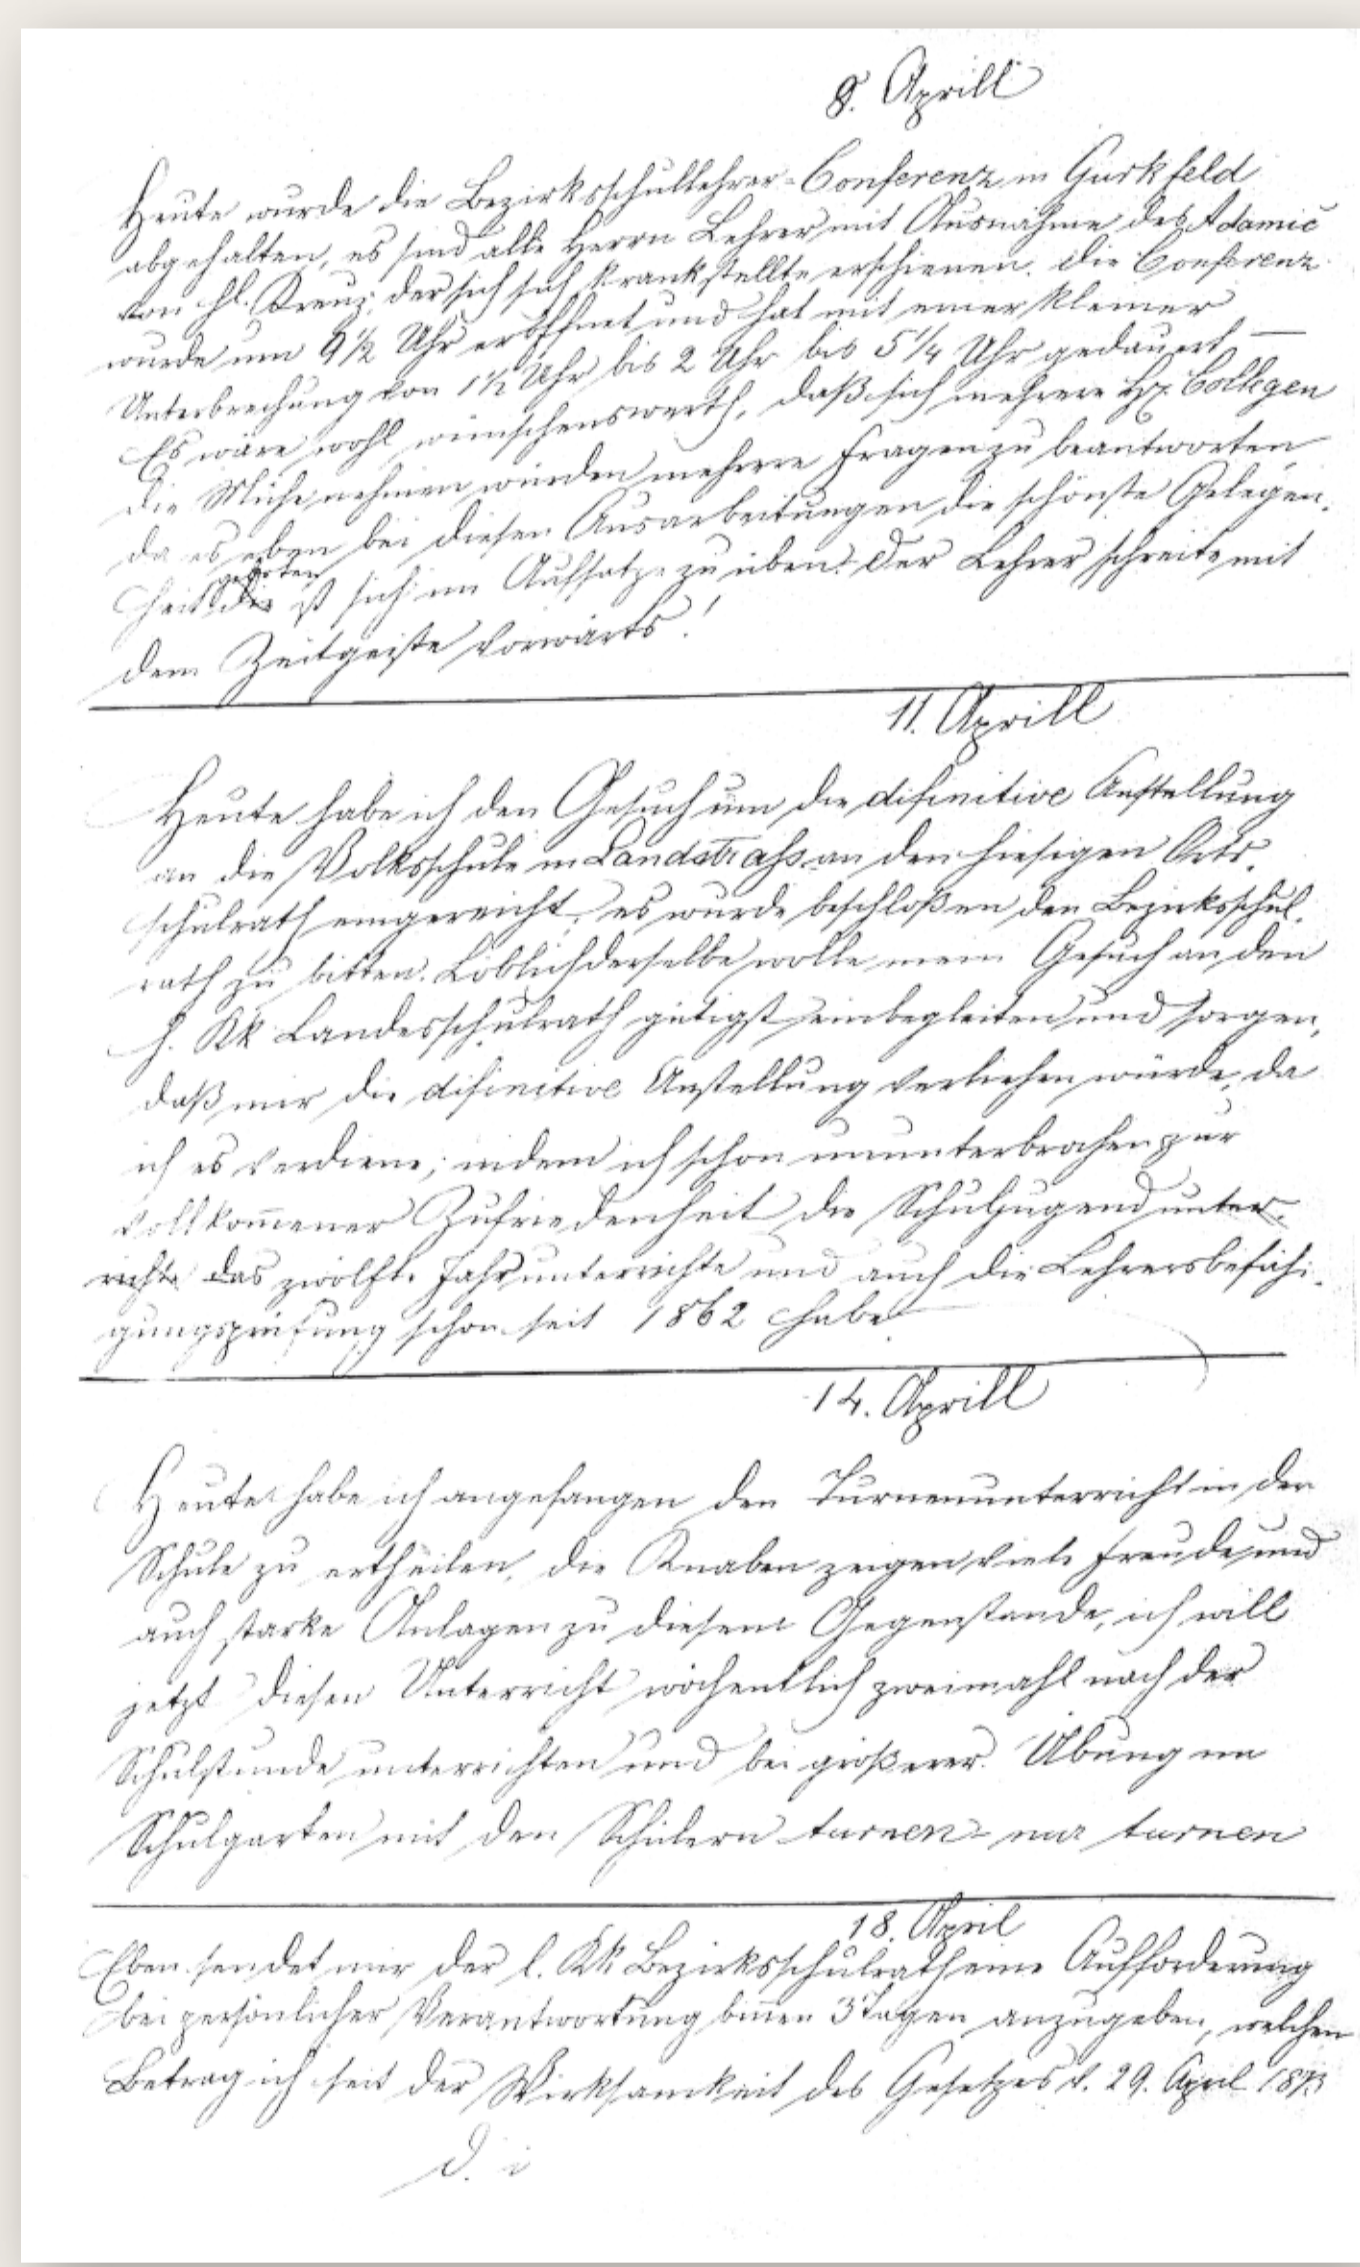 8. Aprill
Heute wurde die Bezirksschullehrer-Conferenz in Gurkfeld
abgehalten, es sind alle Herrn Lehrer mit Ausnahme des Adamič
von hl. Kreuz, der sich sich krankstellte erschienen. Die Conferenz
wurde um 9 1/2 Uhr eröffnet und hat mit einer kleiner
Unterbrechung von 1 1/2 Uhr bis 2 Uhr bis 5 1/4 Uhr gedauert –
Es wäre wohl wünschenswerth, daß sich mehrere Hr. Collegen
die Mühe nehmen würden mehrere Fragen zu beantworten,
da es eben bei diesen Ausarbeitungen die schönste Gelegen-
geboten
heit ist sich im Aufsatze zu üben. Der Lehrer schreite mit
dem Zeitgeiste vorwärts!
11. Aprill
Heute habe ich den Gesuch um die difinitive Anstellung
an die Volksschule in Landstrass an den hiesigen Orts-
schulrath eingereicht, es wurde beschloßen den Bezirksschul-
rath zu bitten. Löblichderselbe wolle mein Gesuch an den
h. kk Landesschulrath gütigst einbegleiten und sorgen,
daß mir die difinitive Anstellung verliehen würde, da
ich es verdiene; indem ich schon ununterbrochen zur
vollkom̄ener Zufriedenheit die Schuljugend unter-
richte das zwölfte Jahr unterrichte und auch die Lehrersbefähi-
gungsprüfung schon seit 1862 habe.
14. Aprill
Heute habe ich angefangen den Turnenunterricht in der
Schule zu ertheilen, die Knaben zeigen viele Freude und
auch starke Anlagen zu diesem Gegenstande, ich will
jetzt diesen Unterricht wöchentlich zweimahl nach der
Schulstunde unterrichten und bei größerer Übung im
Schulgarten mit den Schülern turnen - nur turnen
18. April
Eben sendet mir der l. kk Bezirksschulrath eine Aufforderung
bei persönlicher Verantwortung bin̄en 3 Tagen anzugeben, welchen
Betrag ich seit der Wirksamkeit des Gesetzes v. 29. April 1873
d. i